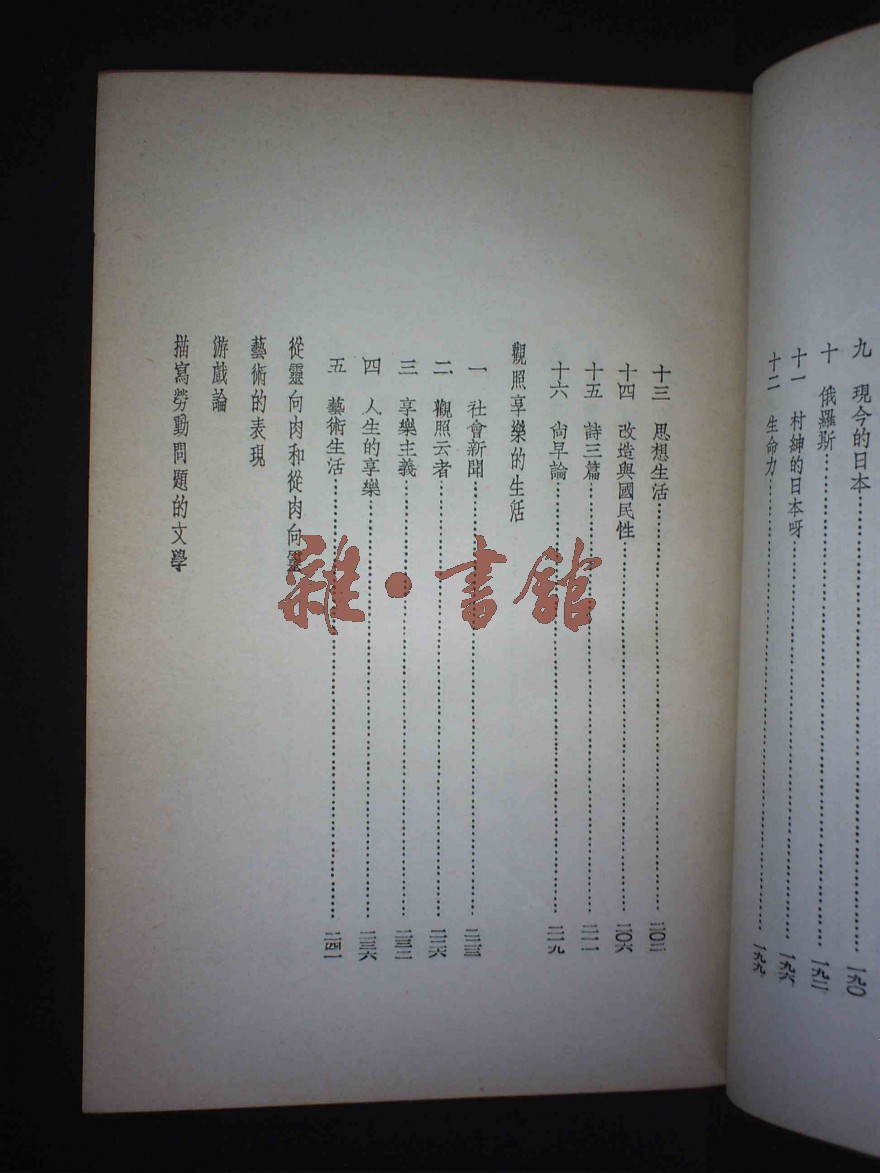 九 現今的日本 一九〇
十 俄羅斯 一九二
十一 村紳的日本呀 一九六
十二 生命力 一九九
十三 思想生活 二〇二
十四 改造與國民性 二〇六
十五 詩三篇 二一一
十六 尙早論 二一九
觀照享樂的生活
一 社會新聞 二二三
二 觀照云者 二二六
三 享樂主義 二三二
四 人生的享樂 二三六
五 藝術生活 二四一
從靈向肉和從肉向靈
藝術的表現
游戲論
描寫勞動問題的文學
雜·書館